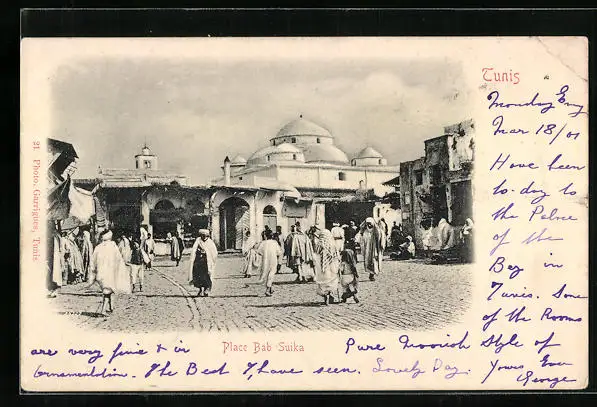 Tunis
Monday Evg
Mar 18/01
Have been
to-day to
the Palace
of the
Bey in
Tunis. Some
of the Rooms
are very fine & in
Pure Moorish Style of
Ornamentation. The Best I have seen. Lovely Day.
Yours Ever
George
Place Bab Suika
21 Photo. Garrigues, Tunis